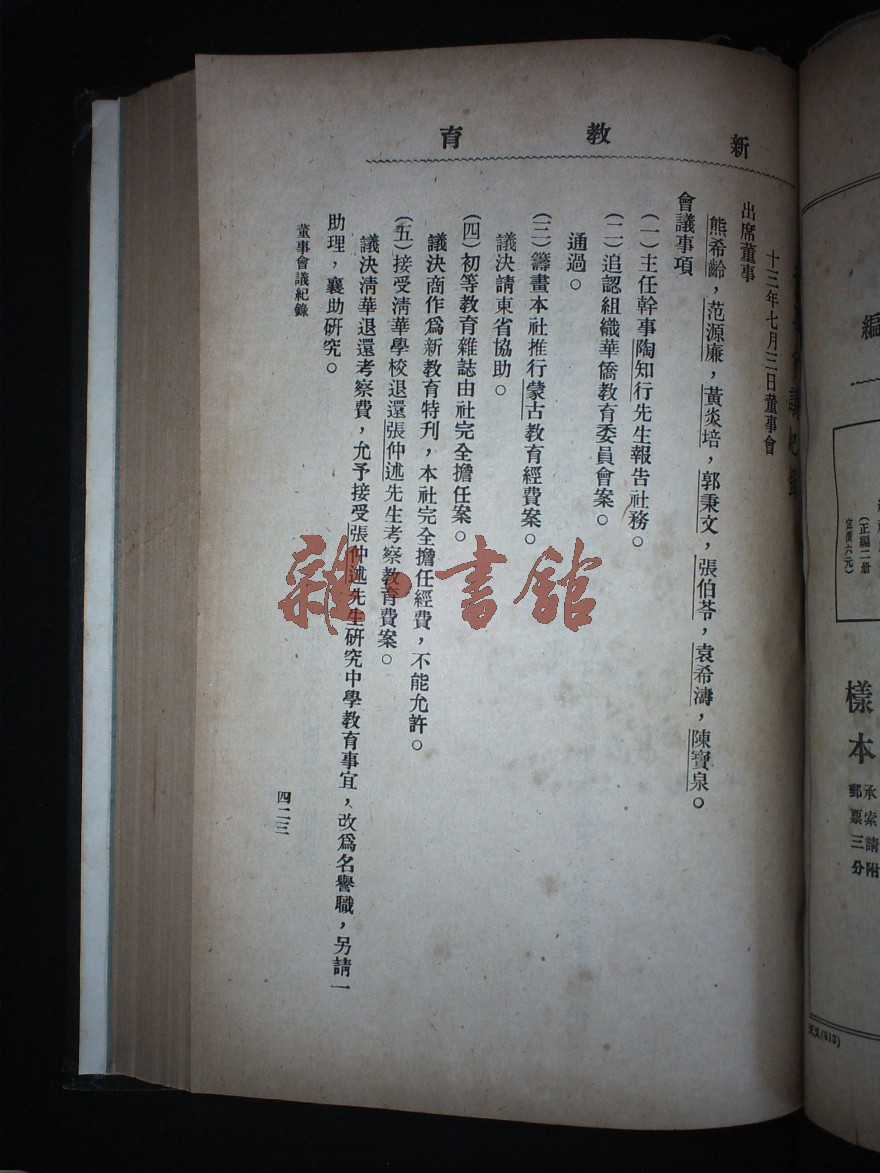 新教育
董事會議紀錄
十三年七月三日董事會
出席董事
熊希齡，范源廉，黃炎培，郭秉文，張伯苓，袁希濤，陳寶泉。
會議事項
(一)主任幹事陶知行先生報告社務。
(二)追認組織華僑教育委員會案。
通過。
(三)籌畫本社推行蒙古教育經費案。
議決請東省協助。
(四)初等教育雜誌由社完全擔任案。
議決商作爲新教育特刊，本社完全擔任經費，不能允許。
(五)接受淸華學校退還張仲述先生考察教育費案。
議決淸華退還考察費，允予接受張仲述先生硏究中學教育事宜，改爲名譽職，另請一
助理，襄助硏究。
董事會議紀錄
四二三
雜·書館
編
(正編二册
定價六元)
樣本
承索請附
郵票三分